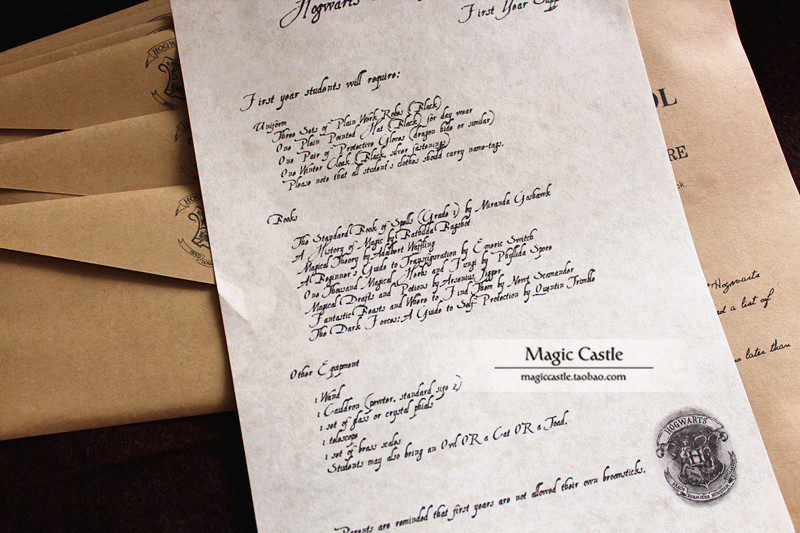 Hogwarts
First Year
First year students will require:
Uniform
Three Sets of Plain Work Robes (Black)
One Plain Pointed Hat (Black) for day wear
One Pair of Protective Gloves (dragon hide or similar)
One Winter Cloak (Black, silver fastenings)
Please note that all student's clothes should carry name-tags.
Books
The Standard Book of Spells (Grade 1) by Miranda Goshawk
A History of Magic by Bathilda Bagshot
Magical Theory by Adalbert Waffling
A Beginner's Guide to Transfiguration by Emeric Switch
One Thousand Magical Herbs and Fungi by Phyllida Spore
Magical Drafts and Potions by Arsenius Jigger
Fantastic Beasts and Where to Find Them by Newt Scamander
The Dark Forces: A Guide to Self-Protection by Quentin Trimble
Other Equipment
1 Wand
1 Cauldron (pewter, standard size 2)
1 set of glass or crystal phials
1 telescope
1 set of brass scales
Students may also bring an Owl OR a Cat OR a Toad.
Parents are reminded that first years are not allowed their own broomsticks.
HOGWARTS
Magic Castle
magiccastle.taobao.com
OL
RE
Hogwarts
a list of
no later than